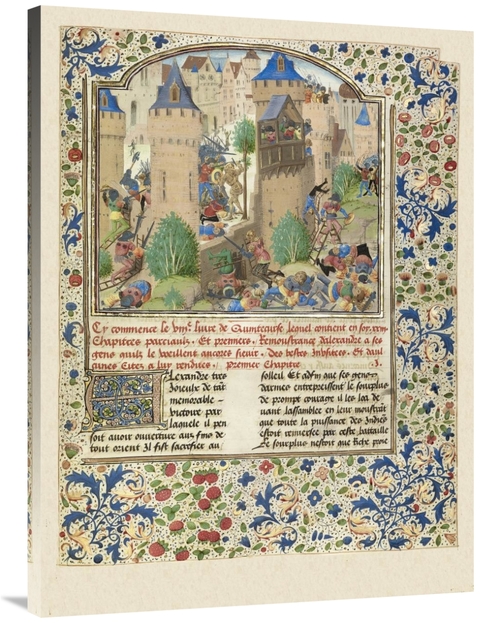 Cy commence le viiie livre de Quintecurse lequel contient en soy xxvi
Chapitres parciaulx. Et premiers, Remonstrance dalexandre a ses
gens quilz le veillent ancores sieuir. Des bestes Indoisces. Et daul
cunes Citez a luy rendues. Premier Chapitre .j.
Alexandre tres
Joieulx de tāt
memorable
victoire par
laquele il pen
soit auoir ouverture aux fins de
tout orient Il fist sacrifier au
solleil Et adfin que ses gens
darmes entrepreissent le sourplus
de prompt courage il les loa de
uant lassamblee en leur monstrāt
que toute la puissance des Indiēs
estoit renversee par ceste bataille
Le sourplus nestoit que Riche proie